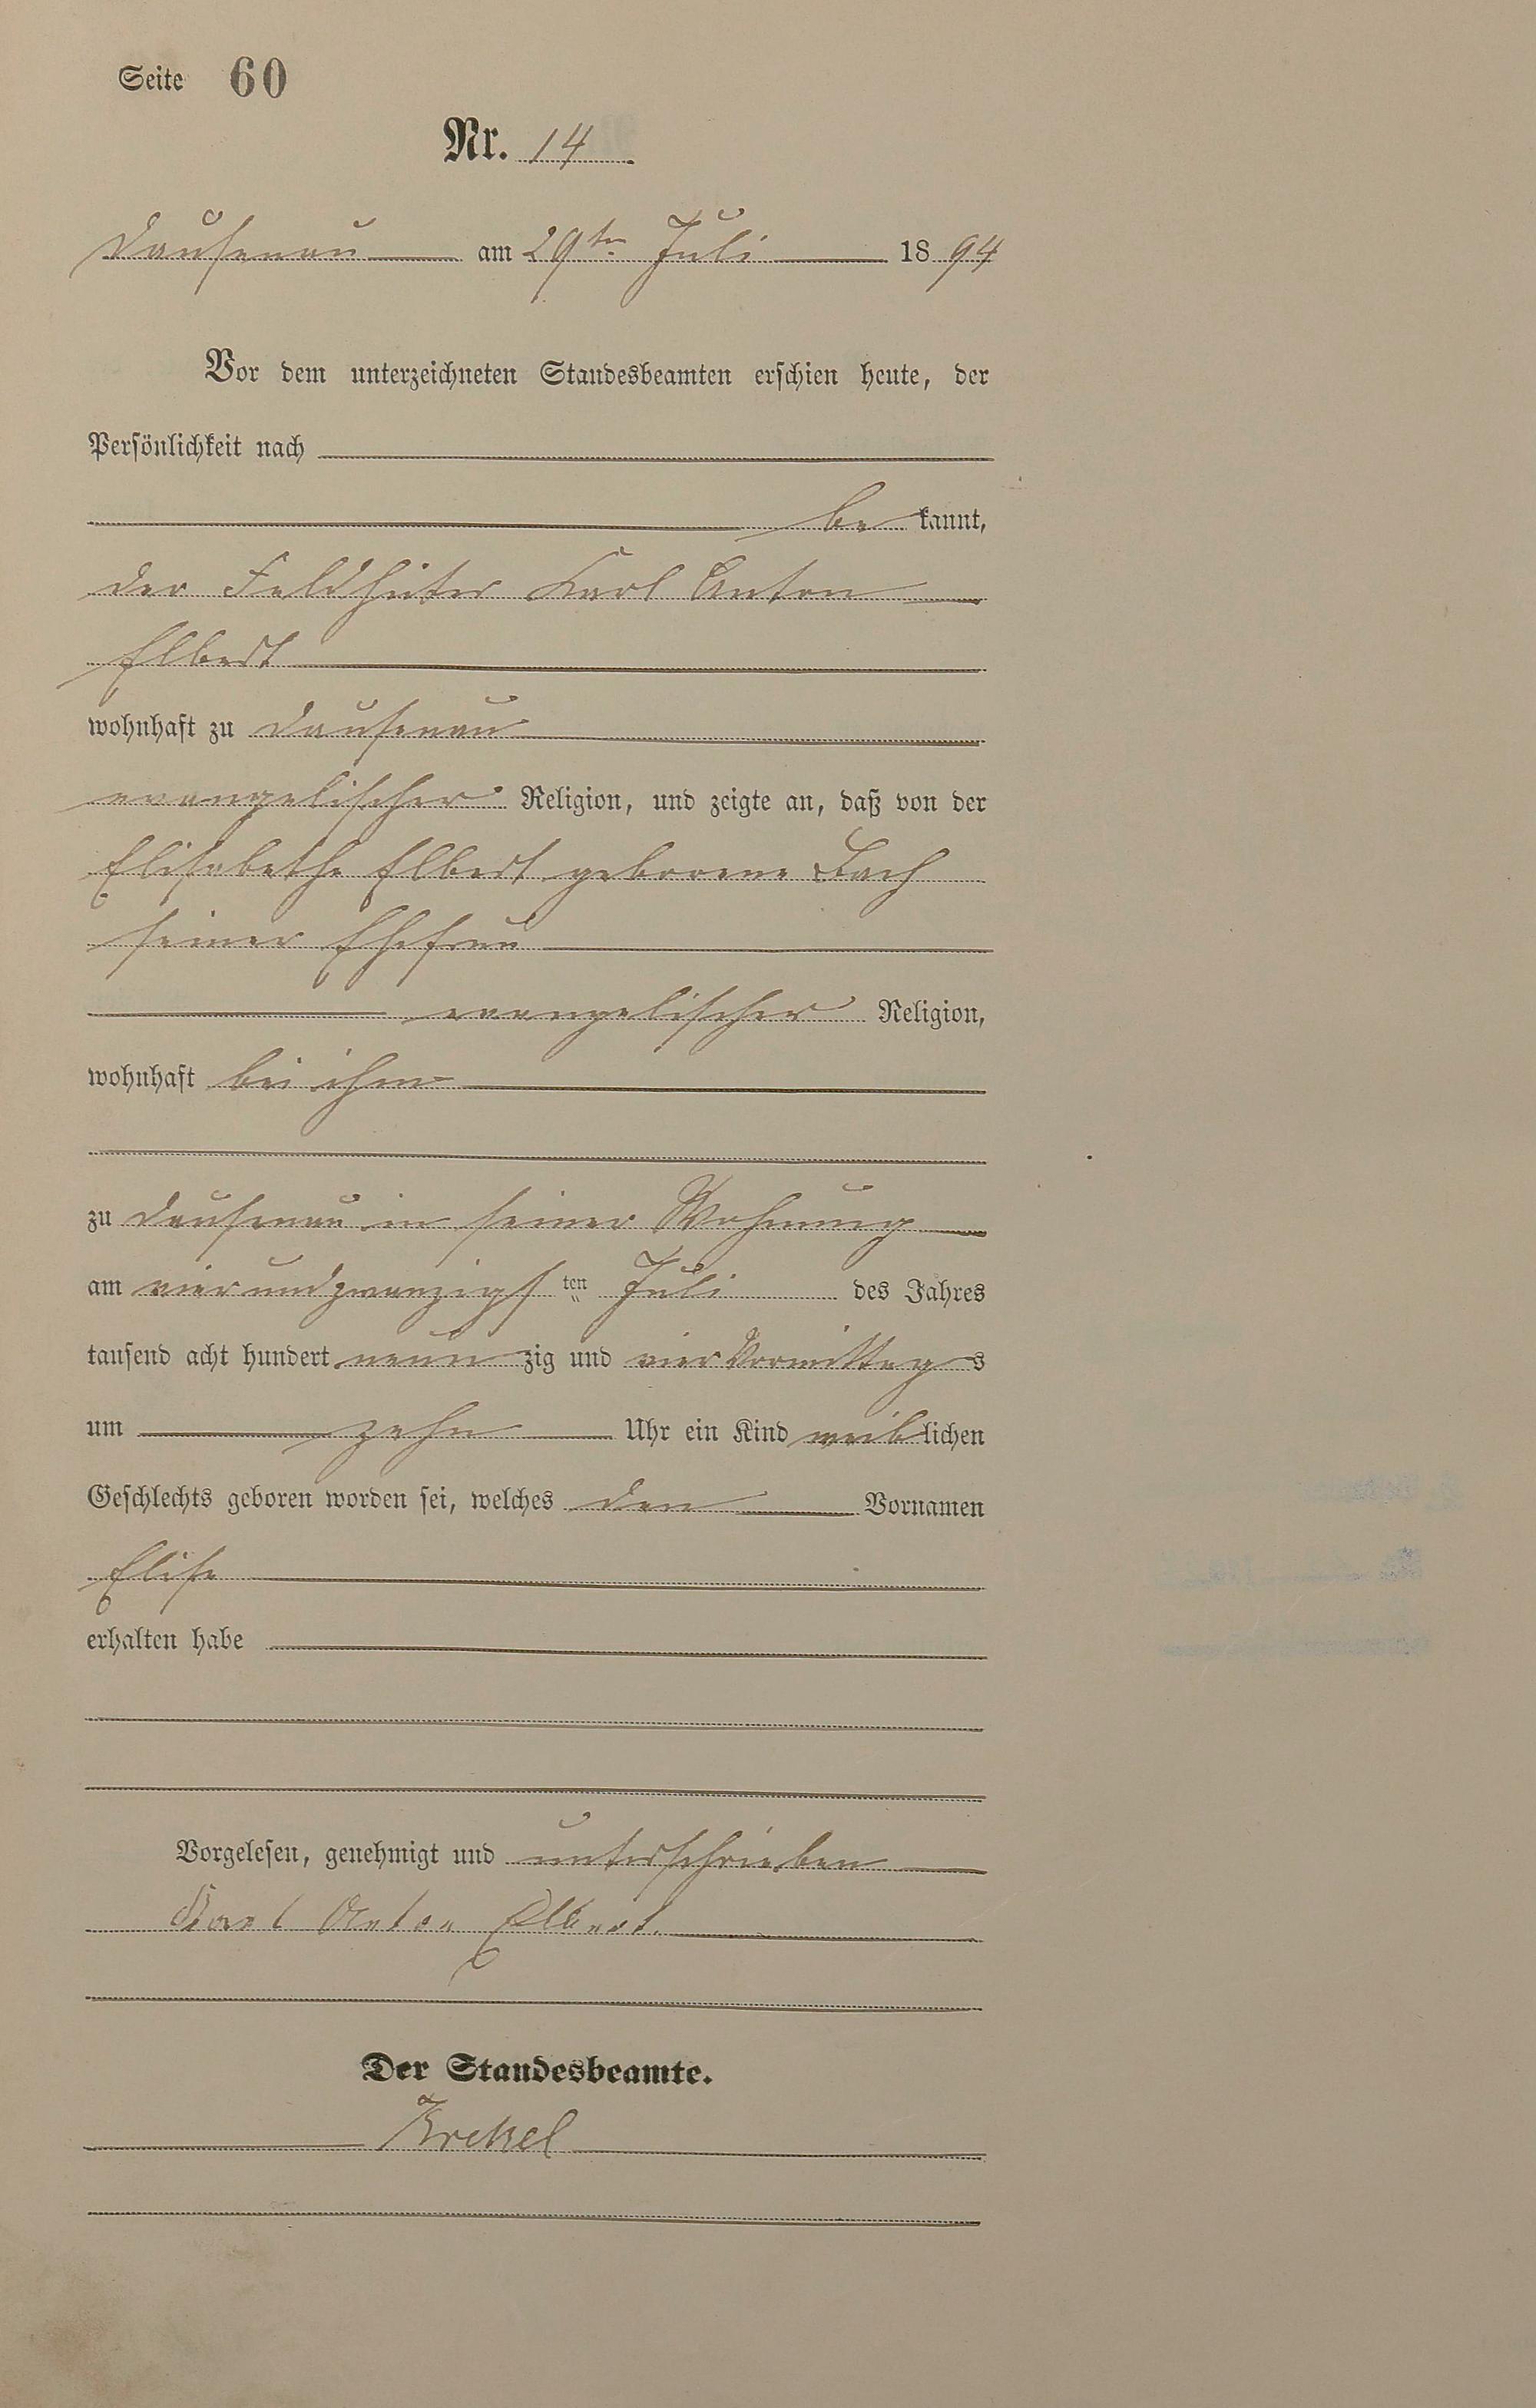 Seite 60
Nr. 14
Dausenau am 29ten Juli 1894
Vor dem unterzeichneten Standesbeamten erschien heute, der
Persönlichkeit nach
be kannt,
der Feldhüter Karl Anton
Elbert
wohnhaft zu Dausenau
evangelischer Religion, und zeigte an, daß von der
Elisabethe Elbert geborene Bach
seiner Ehefrau
evangelischer Religion,
wohnhaft bei ihm
zu Dausenau in seiner Wohnung
am vierundzwanzigsten Juli des Jahres
tausend acht hundert neunzig und vier Vormittags
um zehn Uhr ein Kind weiblichen
Geschlechts geboren worden sei, welches den Vornamen
Elise
erhalten habe
Vorgelesen, genehmigt und unterschrieben
Karl Anton Elbert.
Der Standesbeamte.
Krekel